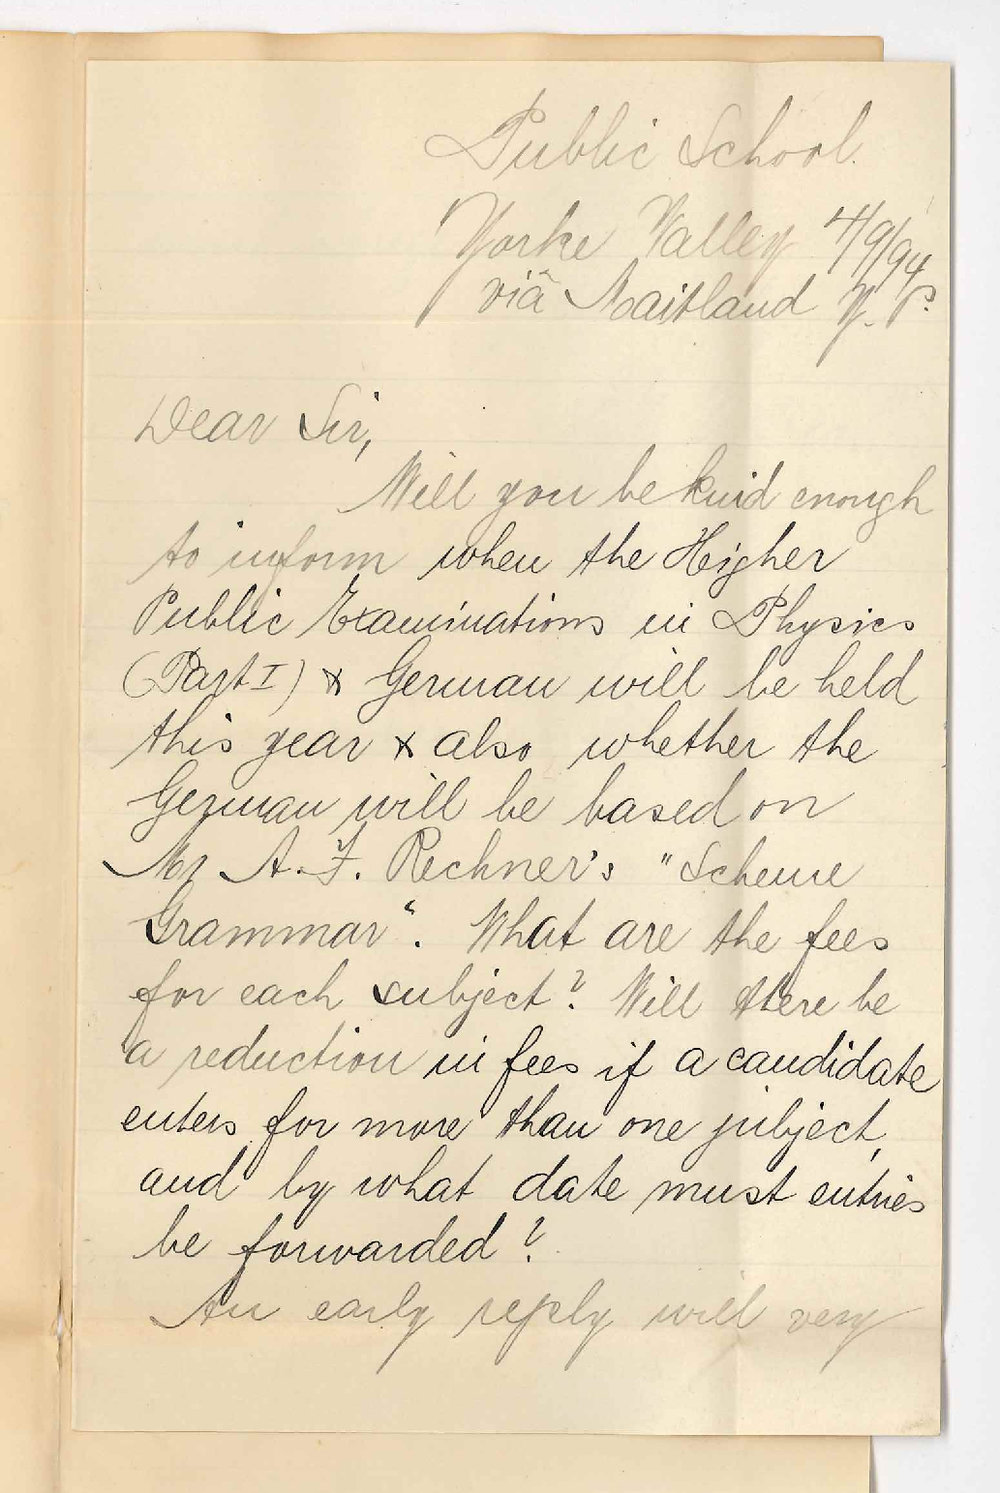 Public School.
Yorke Valley 4/9/94
viâ Maitland Y. P.
Dear Sir,
Will you be kind enough
to inform when the Higher
Public Examinations in Physics
(Part I) & German will be held
this year & also whether the
German will be based on
Mr A. F. Rechner's "Scheme
Grammar". What are the fees
for each subject? Will there be
a reduction in fees if a candidate
enters for more than one subject,
and by what date must entries
be forwarded?
An early reply will very